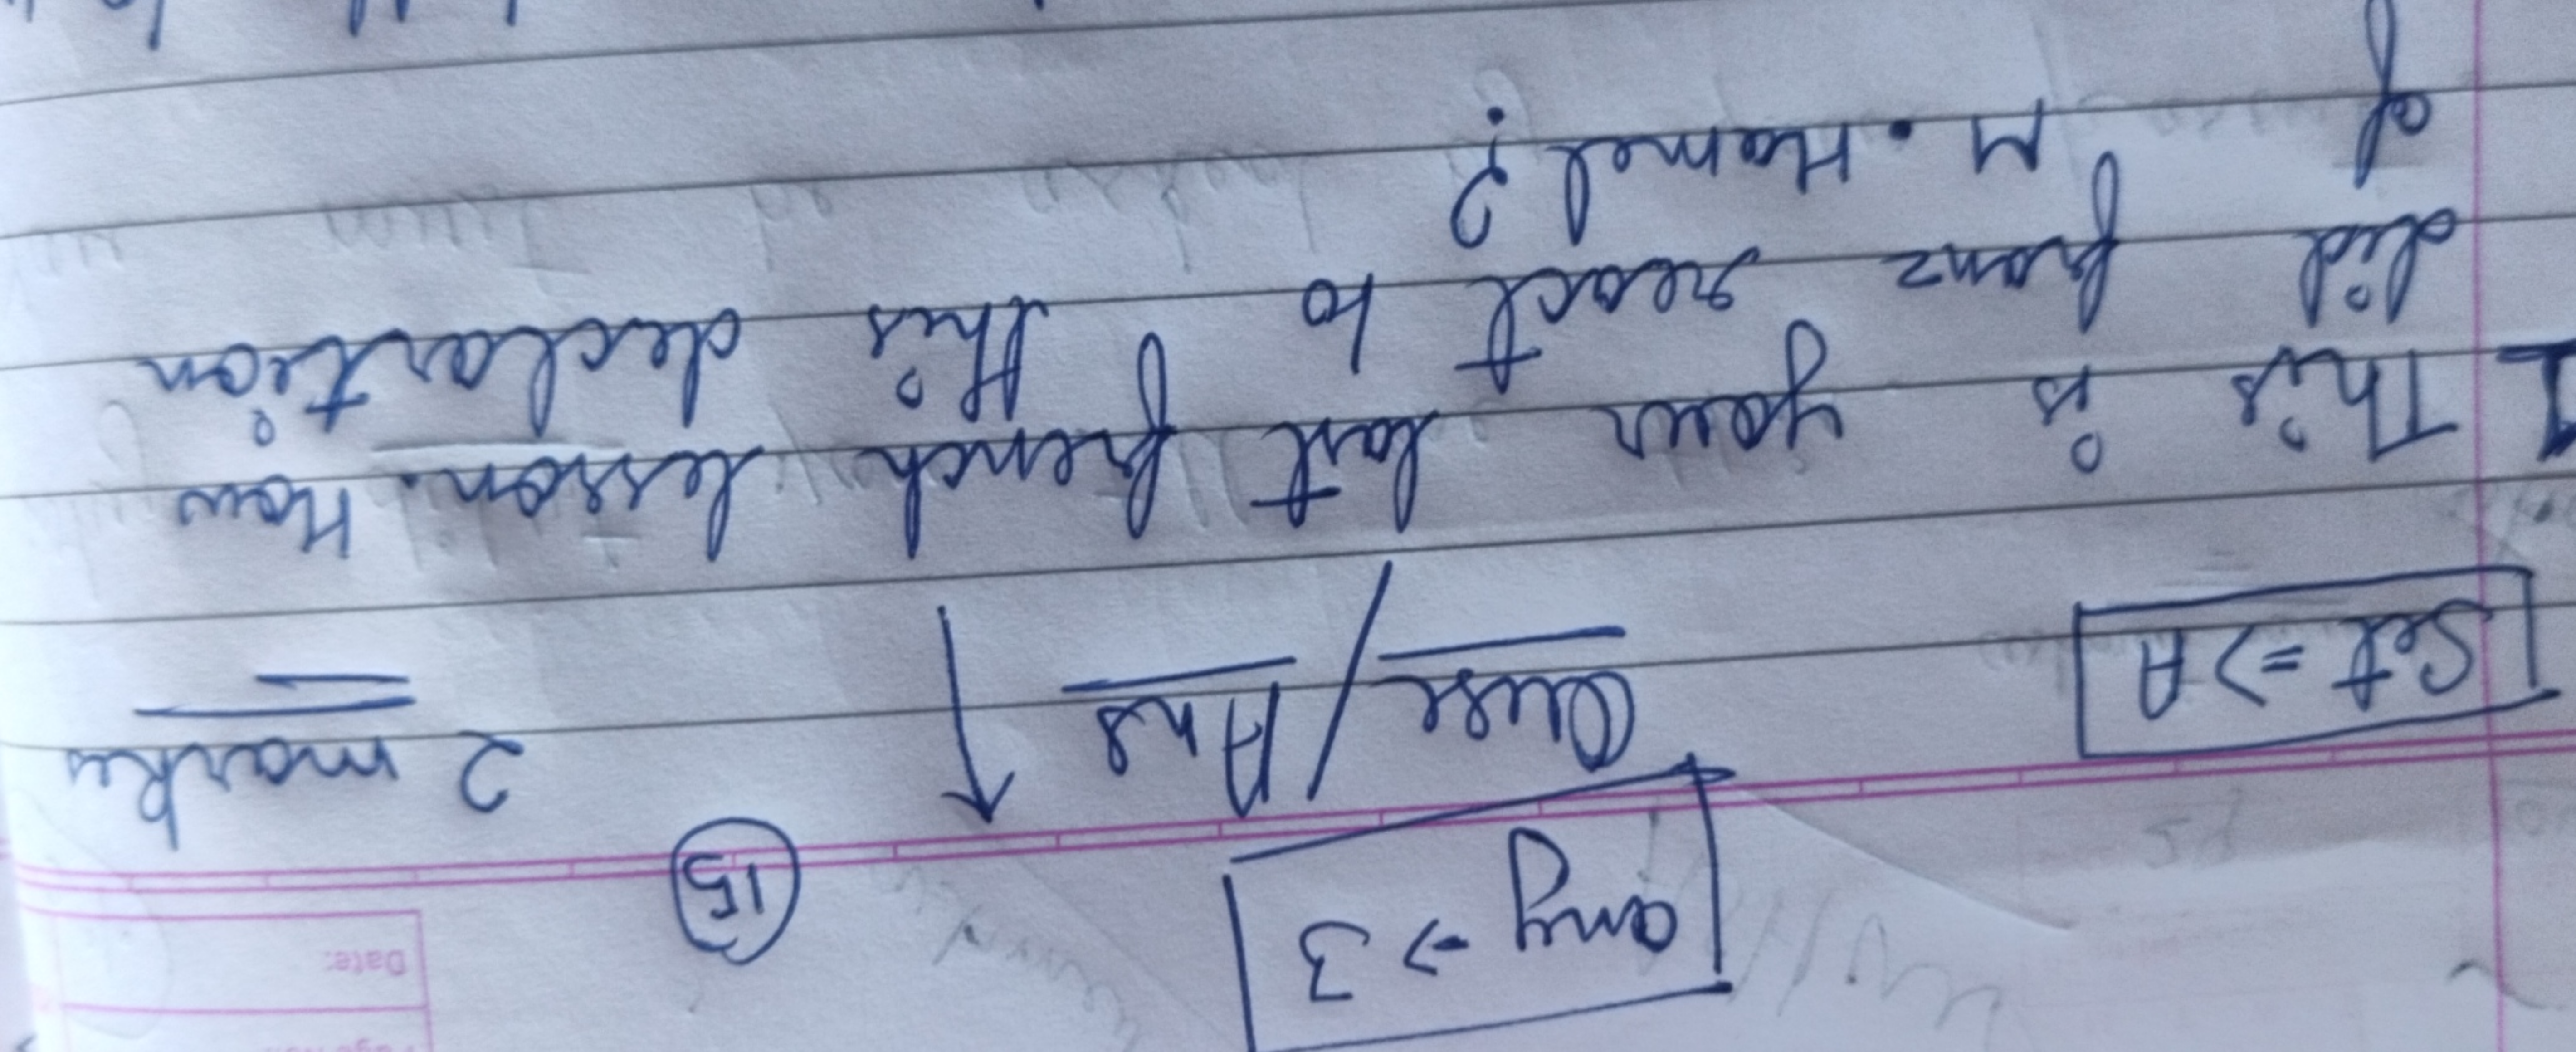 Date:
any → 3
15
Set ⇒ A
Ques / Ans
2 marks
1 This is your last french lesson. How
did franz react to this declartion
of M. Hamel?